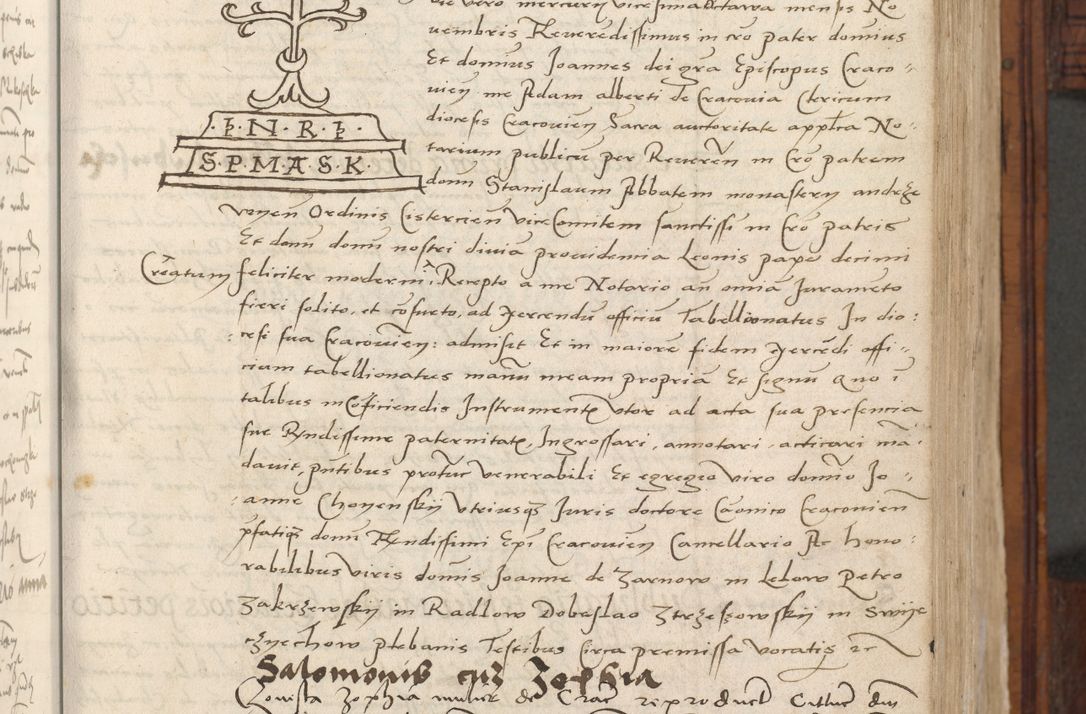 die vero mercurii vicesima octava mensis No
vembris Reveredissimus in cro pater domius
Et domius Joannes dei gra Episcopus Craco-
vien me Adam alberti de Cracovia Clericum
diocesis Cracovien Sacra auctoritate applica No-
tarium publicu per Reveren in Cro patrem
donu Stanislaum Abbatem monastery andrze
·I·N·R·I·
S·P·M·A·S·K·
voyen Ordinis Cistercien vice Comitem sanctissi in Cro patris
Et donu domu nostri divia providemcia Leonis pape decimi
Creatum feliciter moderni Recepto a me Notario an omia Jurameto
fieri solito, et cosueto, ad exercendu officiu Tabellionatus In dio:
:cesi sua Cracovien: admisit Et in maiore fidem exercedi offi-
cium tabellionatus manu meam propria Et signu quo i
talibus in coficiendis Instrumentis utor ad acta sua presencia
sue Rndissime paternitatis, Ingrossari, annotari, acticari ma:
davit, pntibus protuc venerabili Et egregeo viro domio Jo-
:anne Choyenskij Utriusque Juris doctore Caonico Cracovien
pfatique domu Rndissimi Epi Cracovien Cancellario Ac hono:
rabilibus viris domis Joanne de Zarnow in Lelow Petro
Zakrzewskij in Radlow Dobeslao Ztrzeszowskij in Swije
czyechow plebanis Testibus circa premissa vocatis rc
Salomonis cum Zophia
Zophia mulier de Crac reproduct Citluc dni